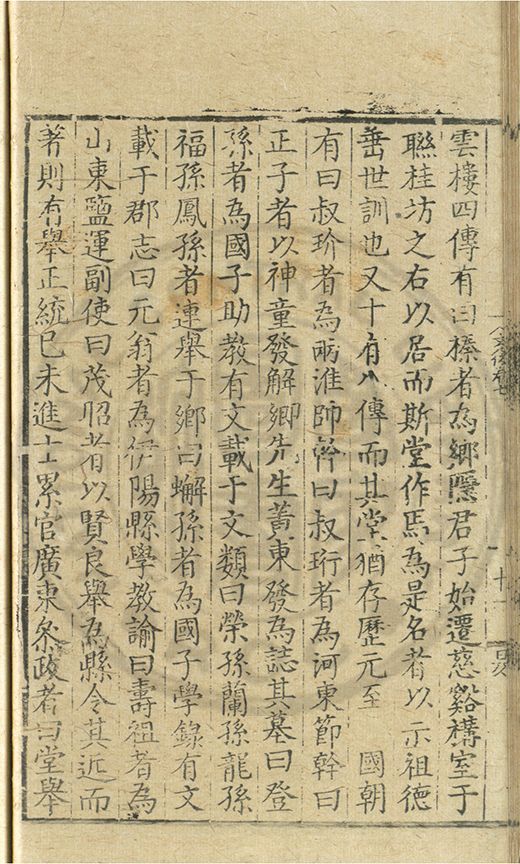 雲樓四傳有曰榛者為鄉隱君子始遷慈谿構室于
聮桂坊之右以居而斯堂作焉為是名者以示祖德
垂世訓也又十有八傳而其堂猶存歷元至　國朝
有曰叔玠者為兩淮帥幹曰叔珩者為河東節幹曰
正子者以神童發解鄉先生黃東發為誌其墓曰登
孫者為國子助教有文載于文類曰榮孫蘭孫龍孫
福孫鳳孫者連舉于鄉曰嶰孫者為國子學錄有文
載于郡志曰元翁者為伊陽縣學教諭曰壽祖者為
山東鹽運副使曰茂昭者以賢良舉為縣令其近而
著則有舉正統己未進士累官廣東叅政者曰堂舉
十一